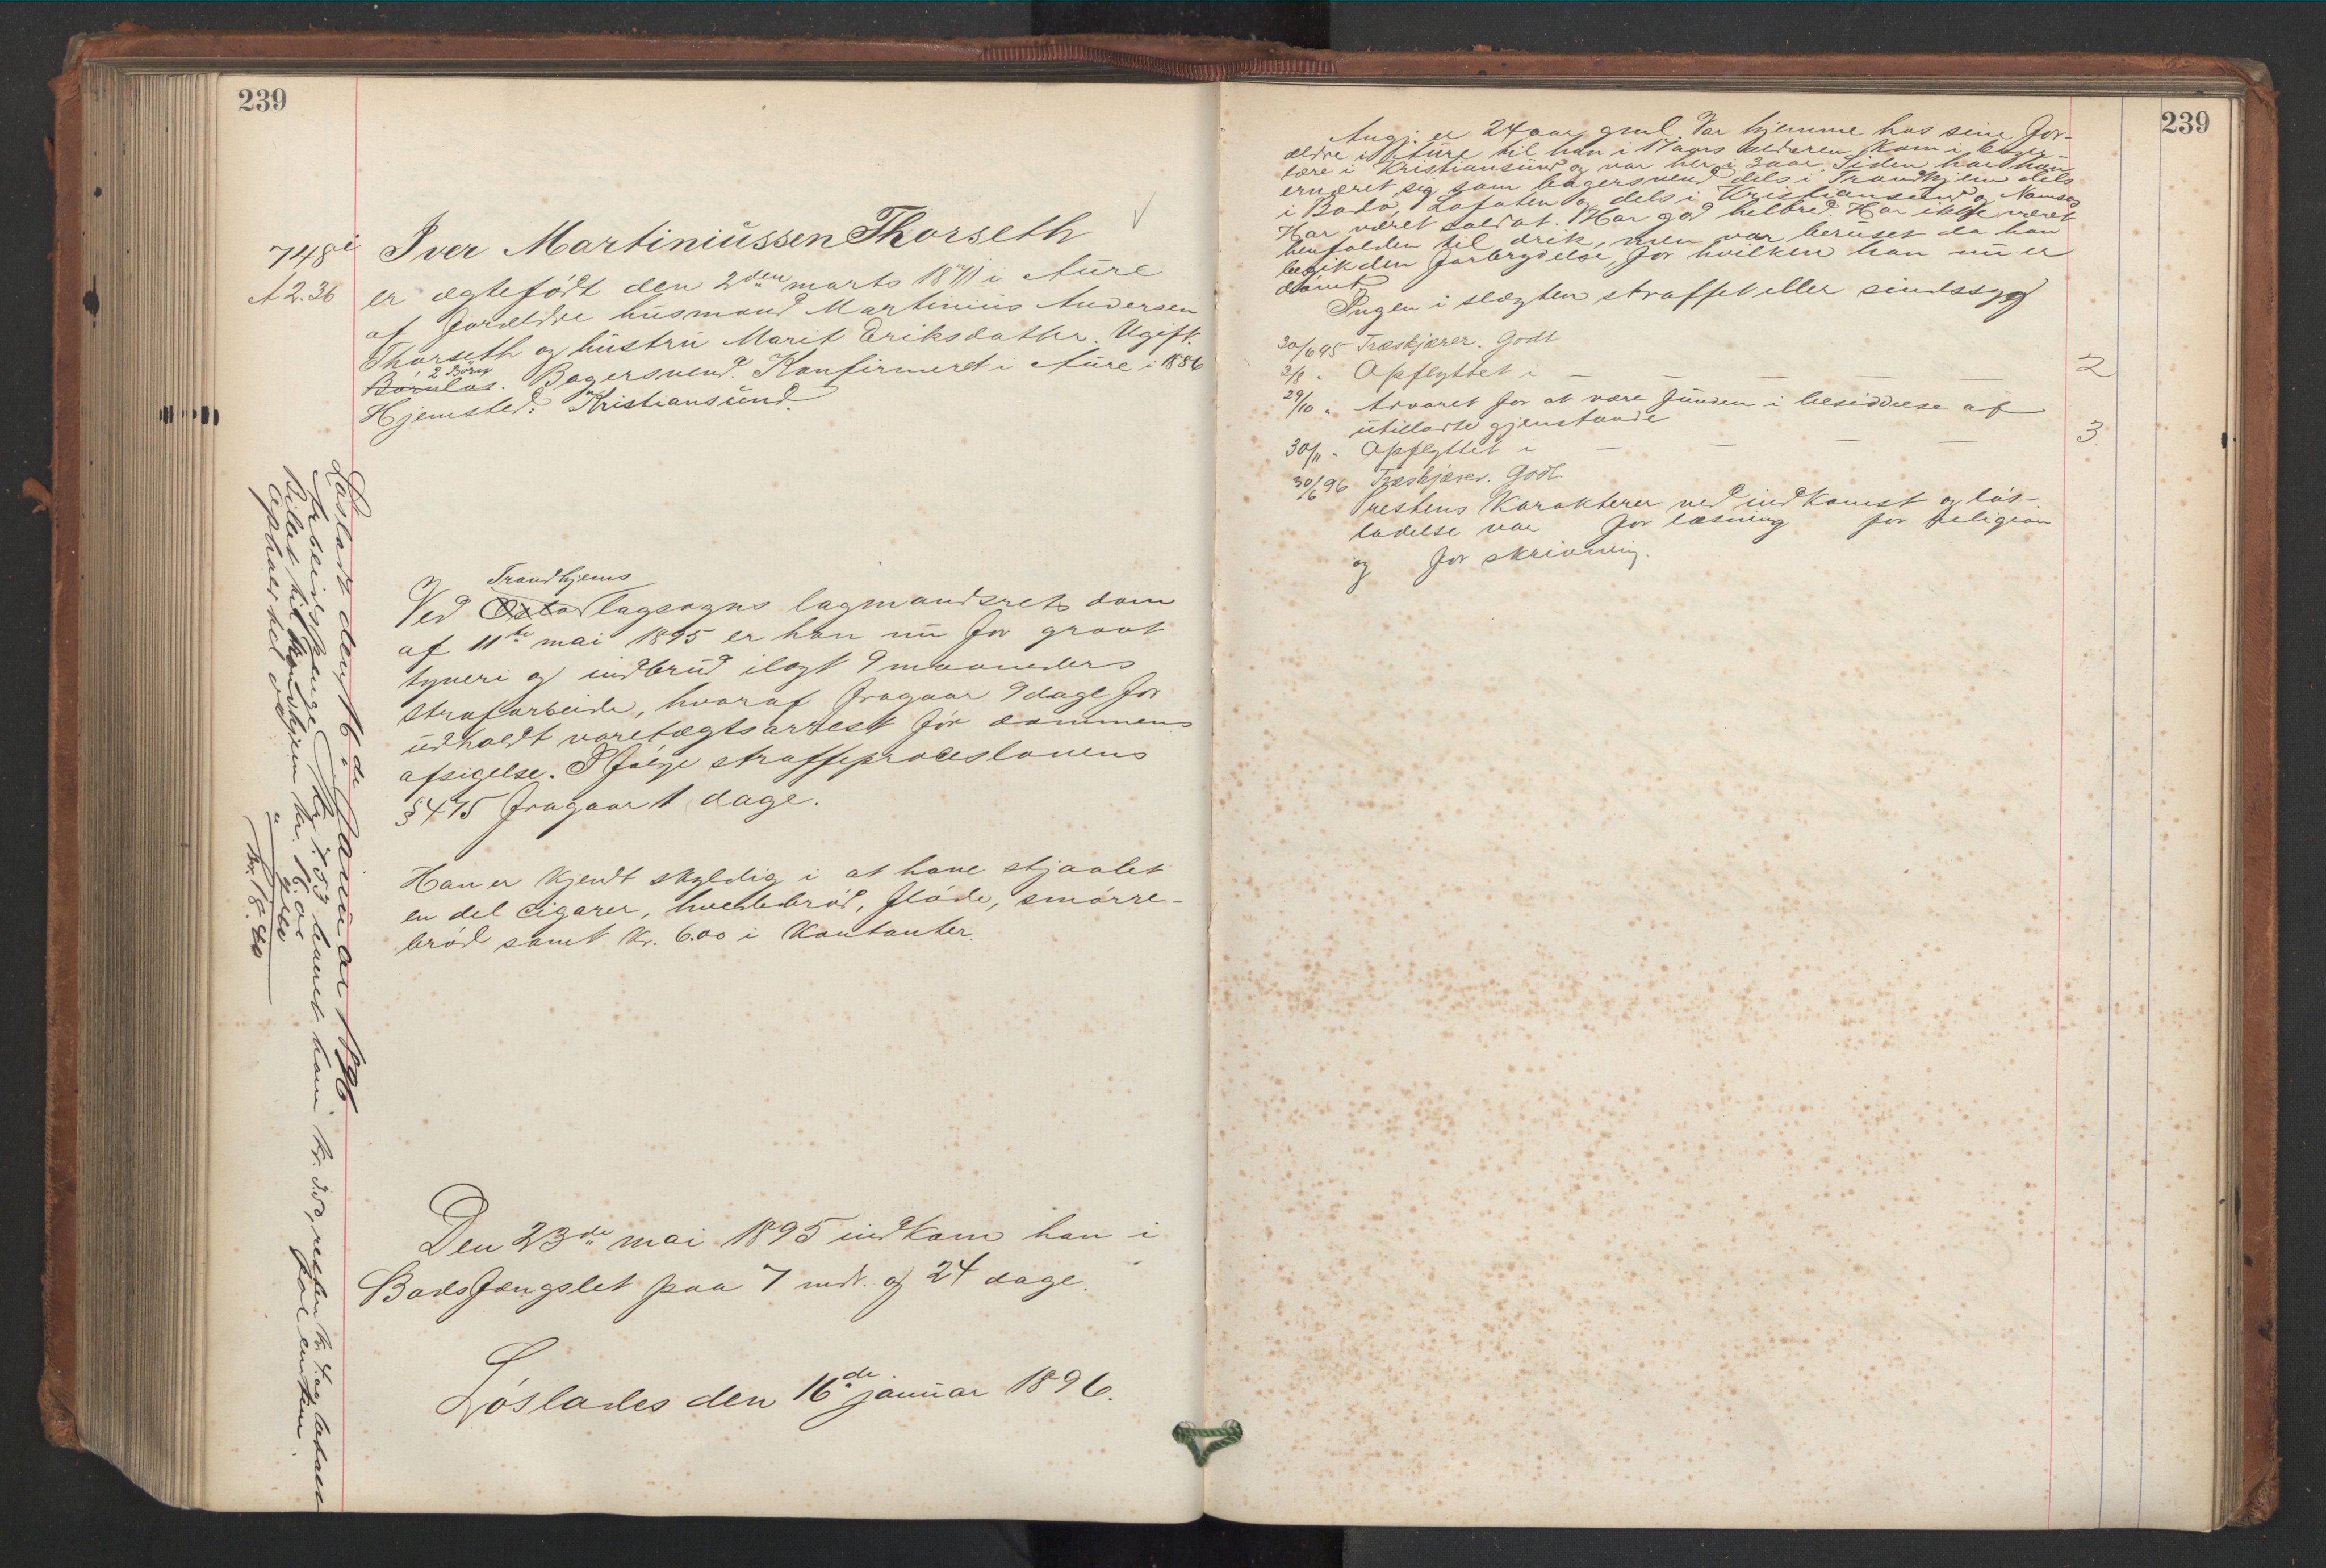 239
748i
A 2.36
Iver Martiniussen Thorseth
er ægtefödt den 2den marts 1871 i Aure
af forældre husmand Martinius Andersen
Thorseth og hustru Marit Eriksdatter. Ugift.
2 Börn
Barnlös. Bagersvend. Konfirmeret i Aure i 1886
Hjemsted: Kristiansund.
Trondhjems
Ved lagsogns lagmandsrets dom
af 11te mai 1895 er han nu for grovt
tyveri og indbrud ilagt 9 maaneders
strafarbeide, hvoraf fragaar 9 dage for
udholdt varetægtsarrest för dommens
afsigelse. I fölge straffeproceslovens
§ 475 fragaar 1 dage.
Han er kjendt skyldig i at have stjaalet
en del cigarer, hvedebröd, flöde, smörre-
bröd samt Kr. 6.00 i Kontanter.
Den 23de mai 1895 indkom han i
Bodsfængslet paa 7 mdr. og 24 dage.
Löslades den 16de januar 1896.
Lösladt den 16de Januar 1896
Arbeidspenge
Billet til Trondhjem kr. 16.00
kr. 18.40
239
Angj. er 24 aar gml. Var hjemme hos sine for-
ældre i Aure til han i 17 aars alderen kom i bager-
lære i Kristiansund og var her i 3 aar. Siden har han
ernæret sig som bagersvend dels i Trondhjem dels
i Bodö, Lofoten og dels i Kristiansund og Namsos
Har været soldat. Har god helbred. Har ikke været
henfalden til drik, men var beruset da han
begik den forbrydelse, for hvilken han nu er
dömt.
Ingen i slægten straffet eller sindssyg
30/6 95 Træskjærer. Godt
2/8 " Opflyttet i — — — — — 2
29/10 " Advaret for at være funden i besiddelse af
utilladte gjenstande
30/11 " Opflyttet i — — — — 3.
30/6 96 Træskjærer. Godt
Prestens Karakterer ved indkomst og lös-
ladelse var for læsning for religion
og for skrivning.